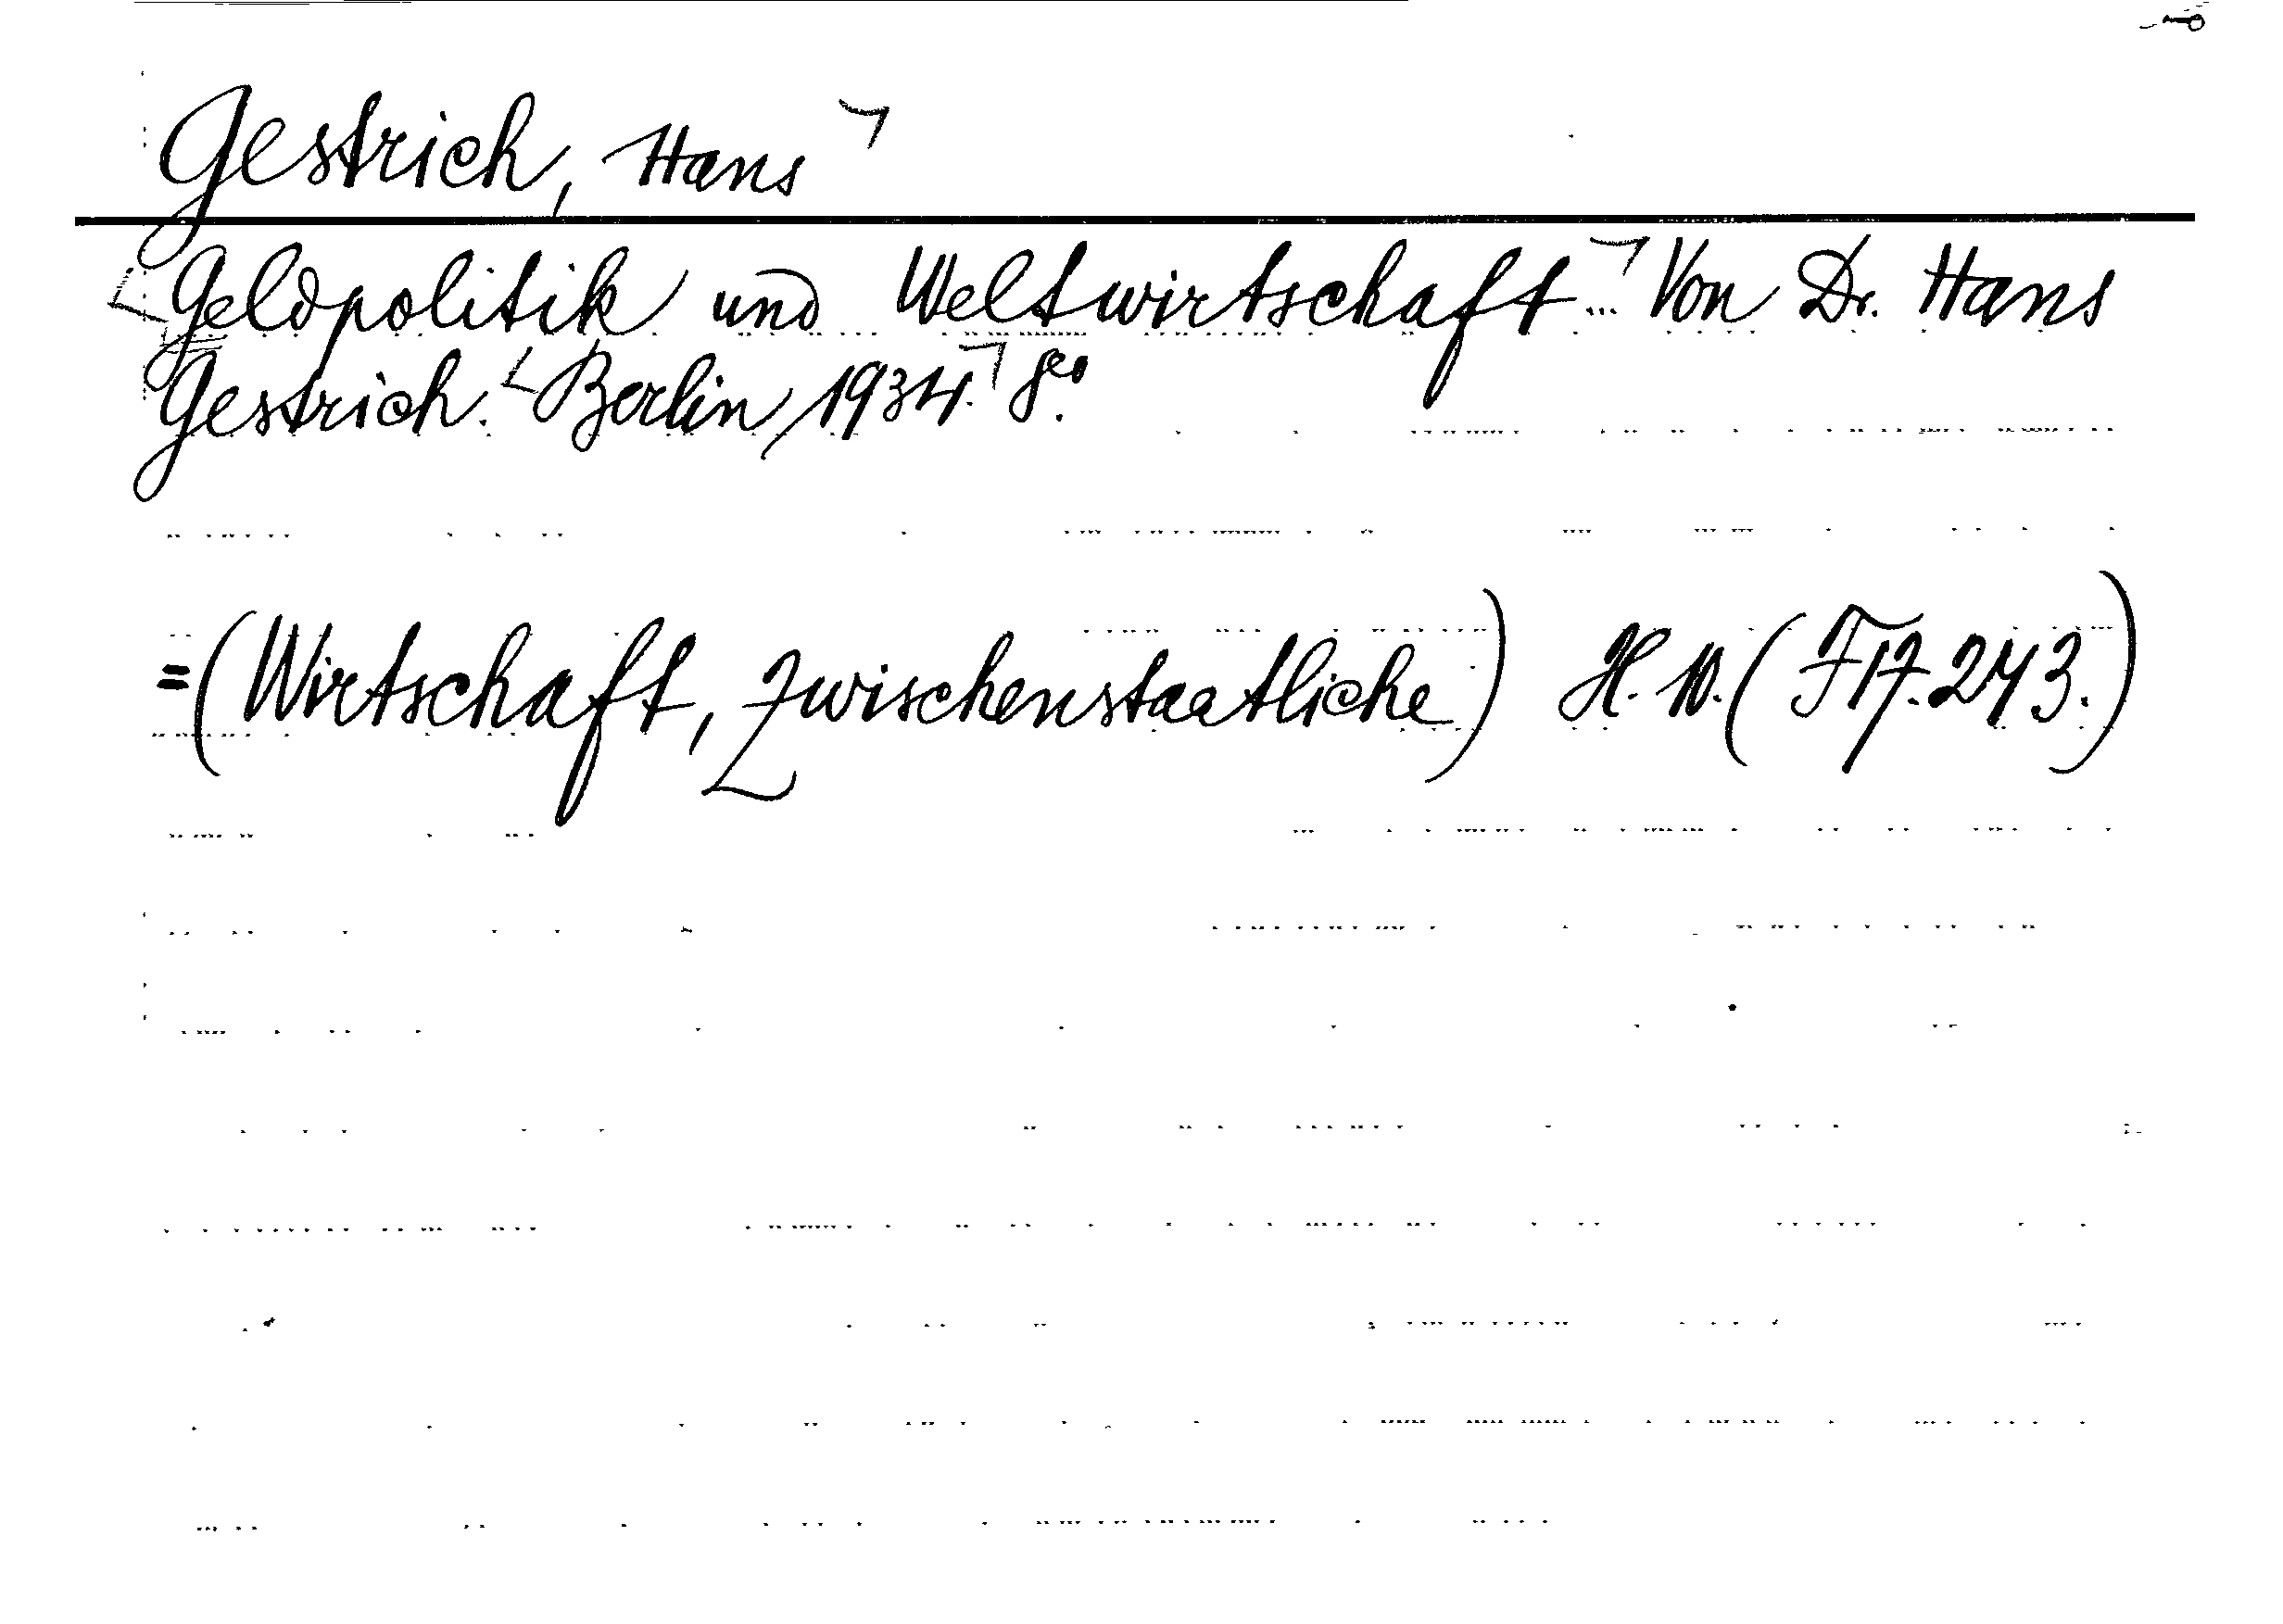 Gestrich, Hans
Geldpolitik und Weltwirtschaft... Von Dr. Hans
Gestrich. Berlin, 1934. 8°.
=(Wirtschaft, Zwischenstaatliche) H. 10. (F17.243.)